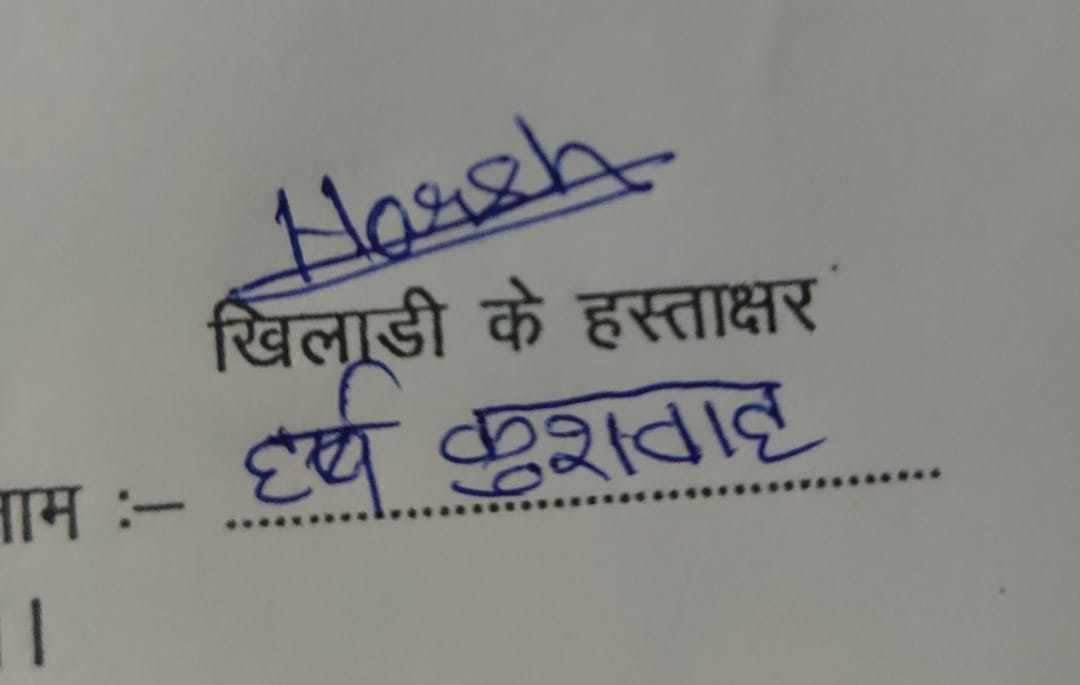 Harsh
खिलाडी के हस्ताक्षर
नाम :- हर्ष कुशवाह
।